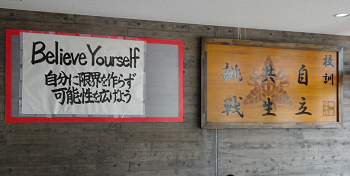 Believe Yourself
自分に限界を作らず
可能性を広げよう
校訓
自立
共生
挑戦